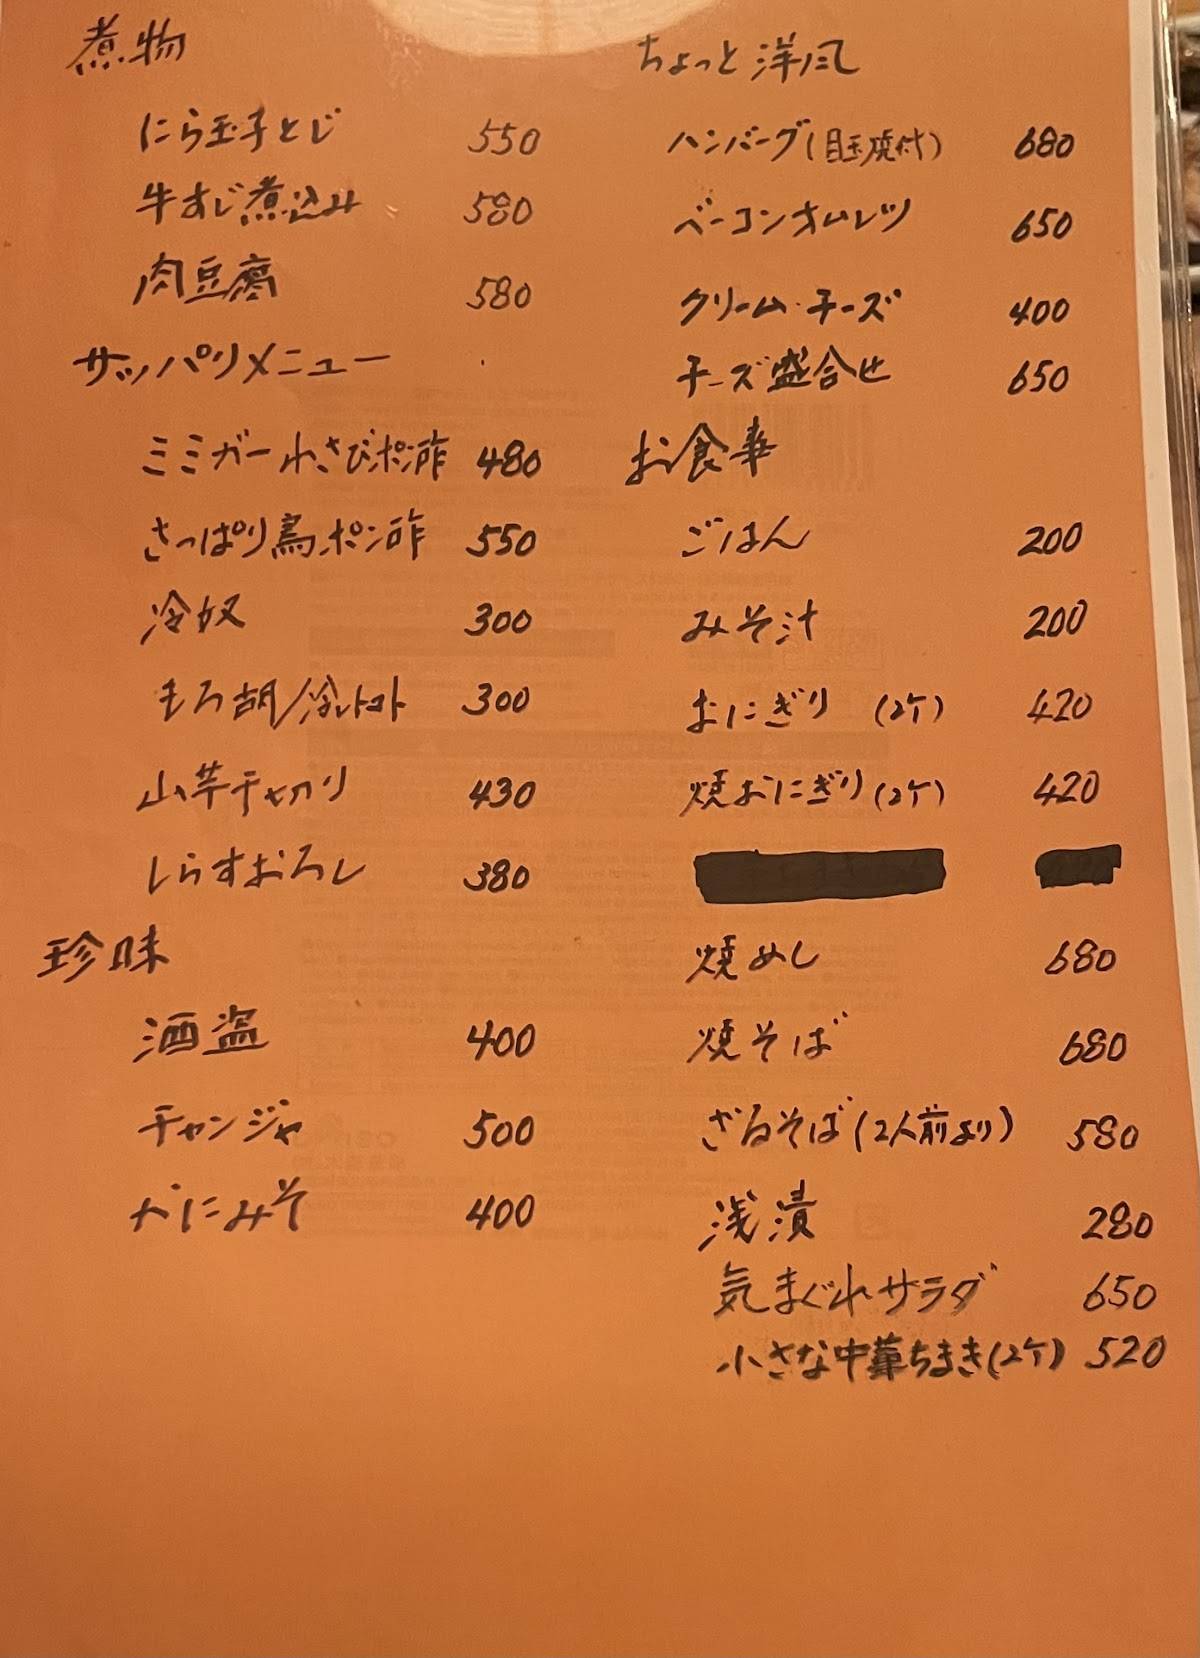 煮物
にら玉子とじ 550
牛すじ煮込み 580
肉豆腐 580
サッパリメニュー
ミミガーわさびポン酢 480
さっぱり鳥ポン酢 550
冷奴 300
もろ胡/冷トマト 300
山芋千切り 430
しらすおろし 380
珍味
酒盗 400
チャンジャ 500
かにみそ 400
ちょっと洋風
ハンバーグ(目玉焼付) 680
ベーコンオムレツ 650
クリーム・チーズ 400
チーズ盛合せ 650
お食事
ごはん 200
みそ汁 200
おにぎり (2ケ) 420
焼おにぎり (2ケ) 420
焼めし 680
焼そば 680
ざるそば(2人前より) 580
浅漬 280
気まぐれサラダ 650
小さな中華ちまき(2ケ) 520